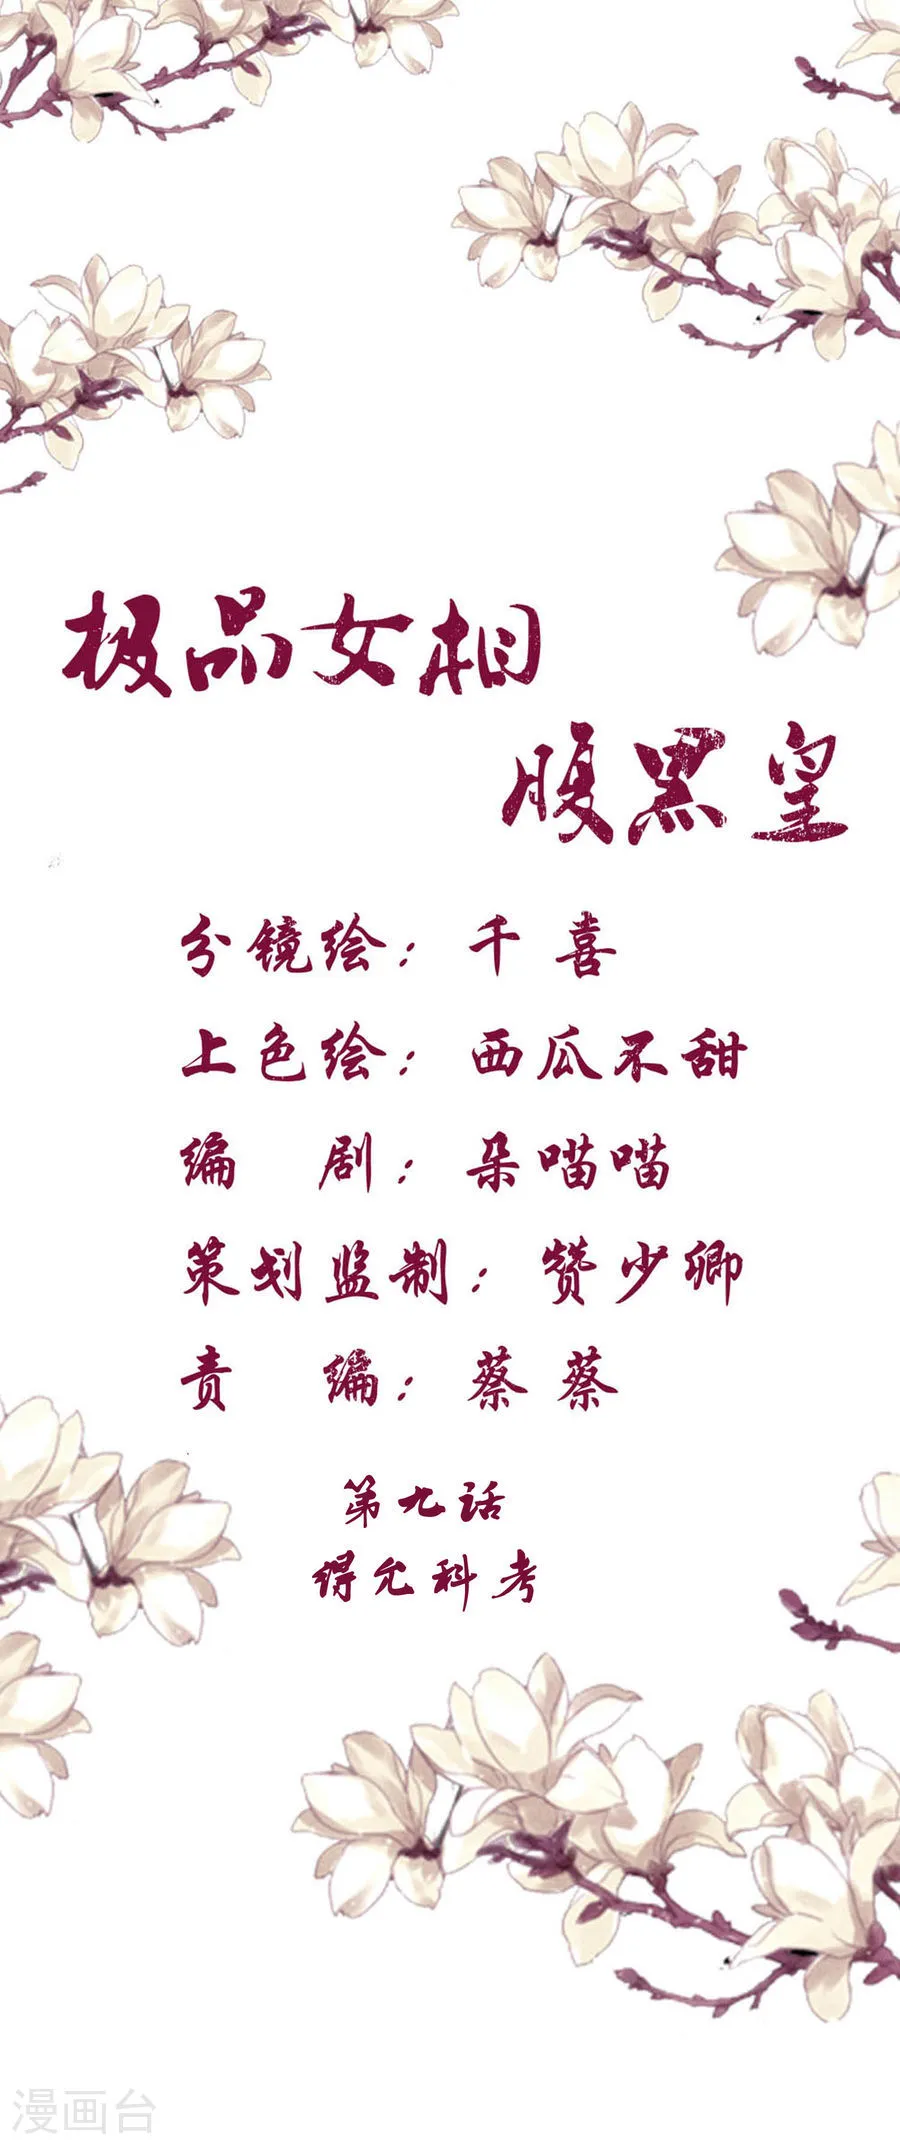 极品女相
腹黑皇
分镜绘：千喜
上色绘：西瓜不甜
编 剧：朵喵喵
策划监制：赞少卿
责 编：蔡蔡
第九话
得允科考
漫画台